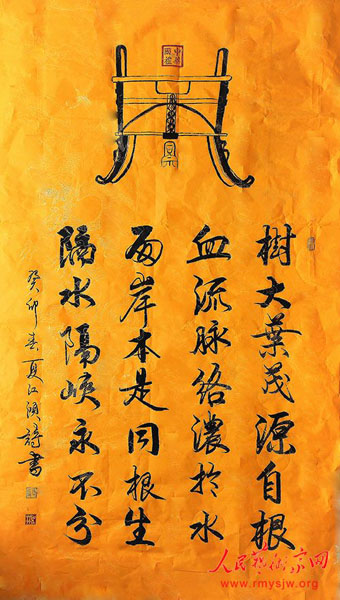 樹大葉茂源自根
血流脉络濃於水
两岸本是同根生
隔水隔峡永不分
癸卯春夏江顺詩書
人民藝術家网
www.rmysjw.org